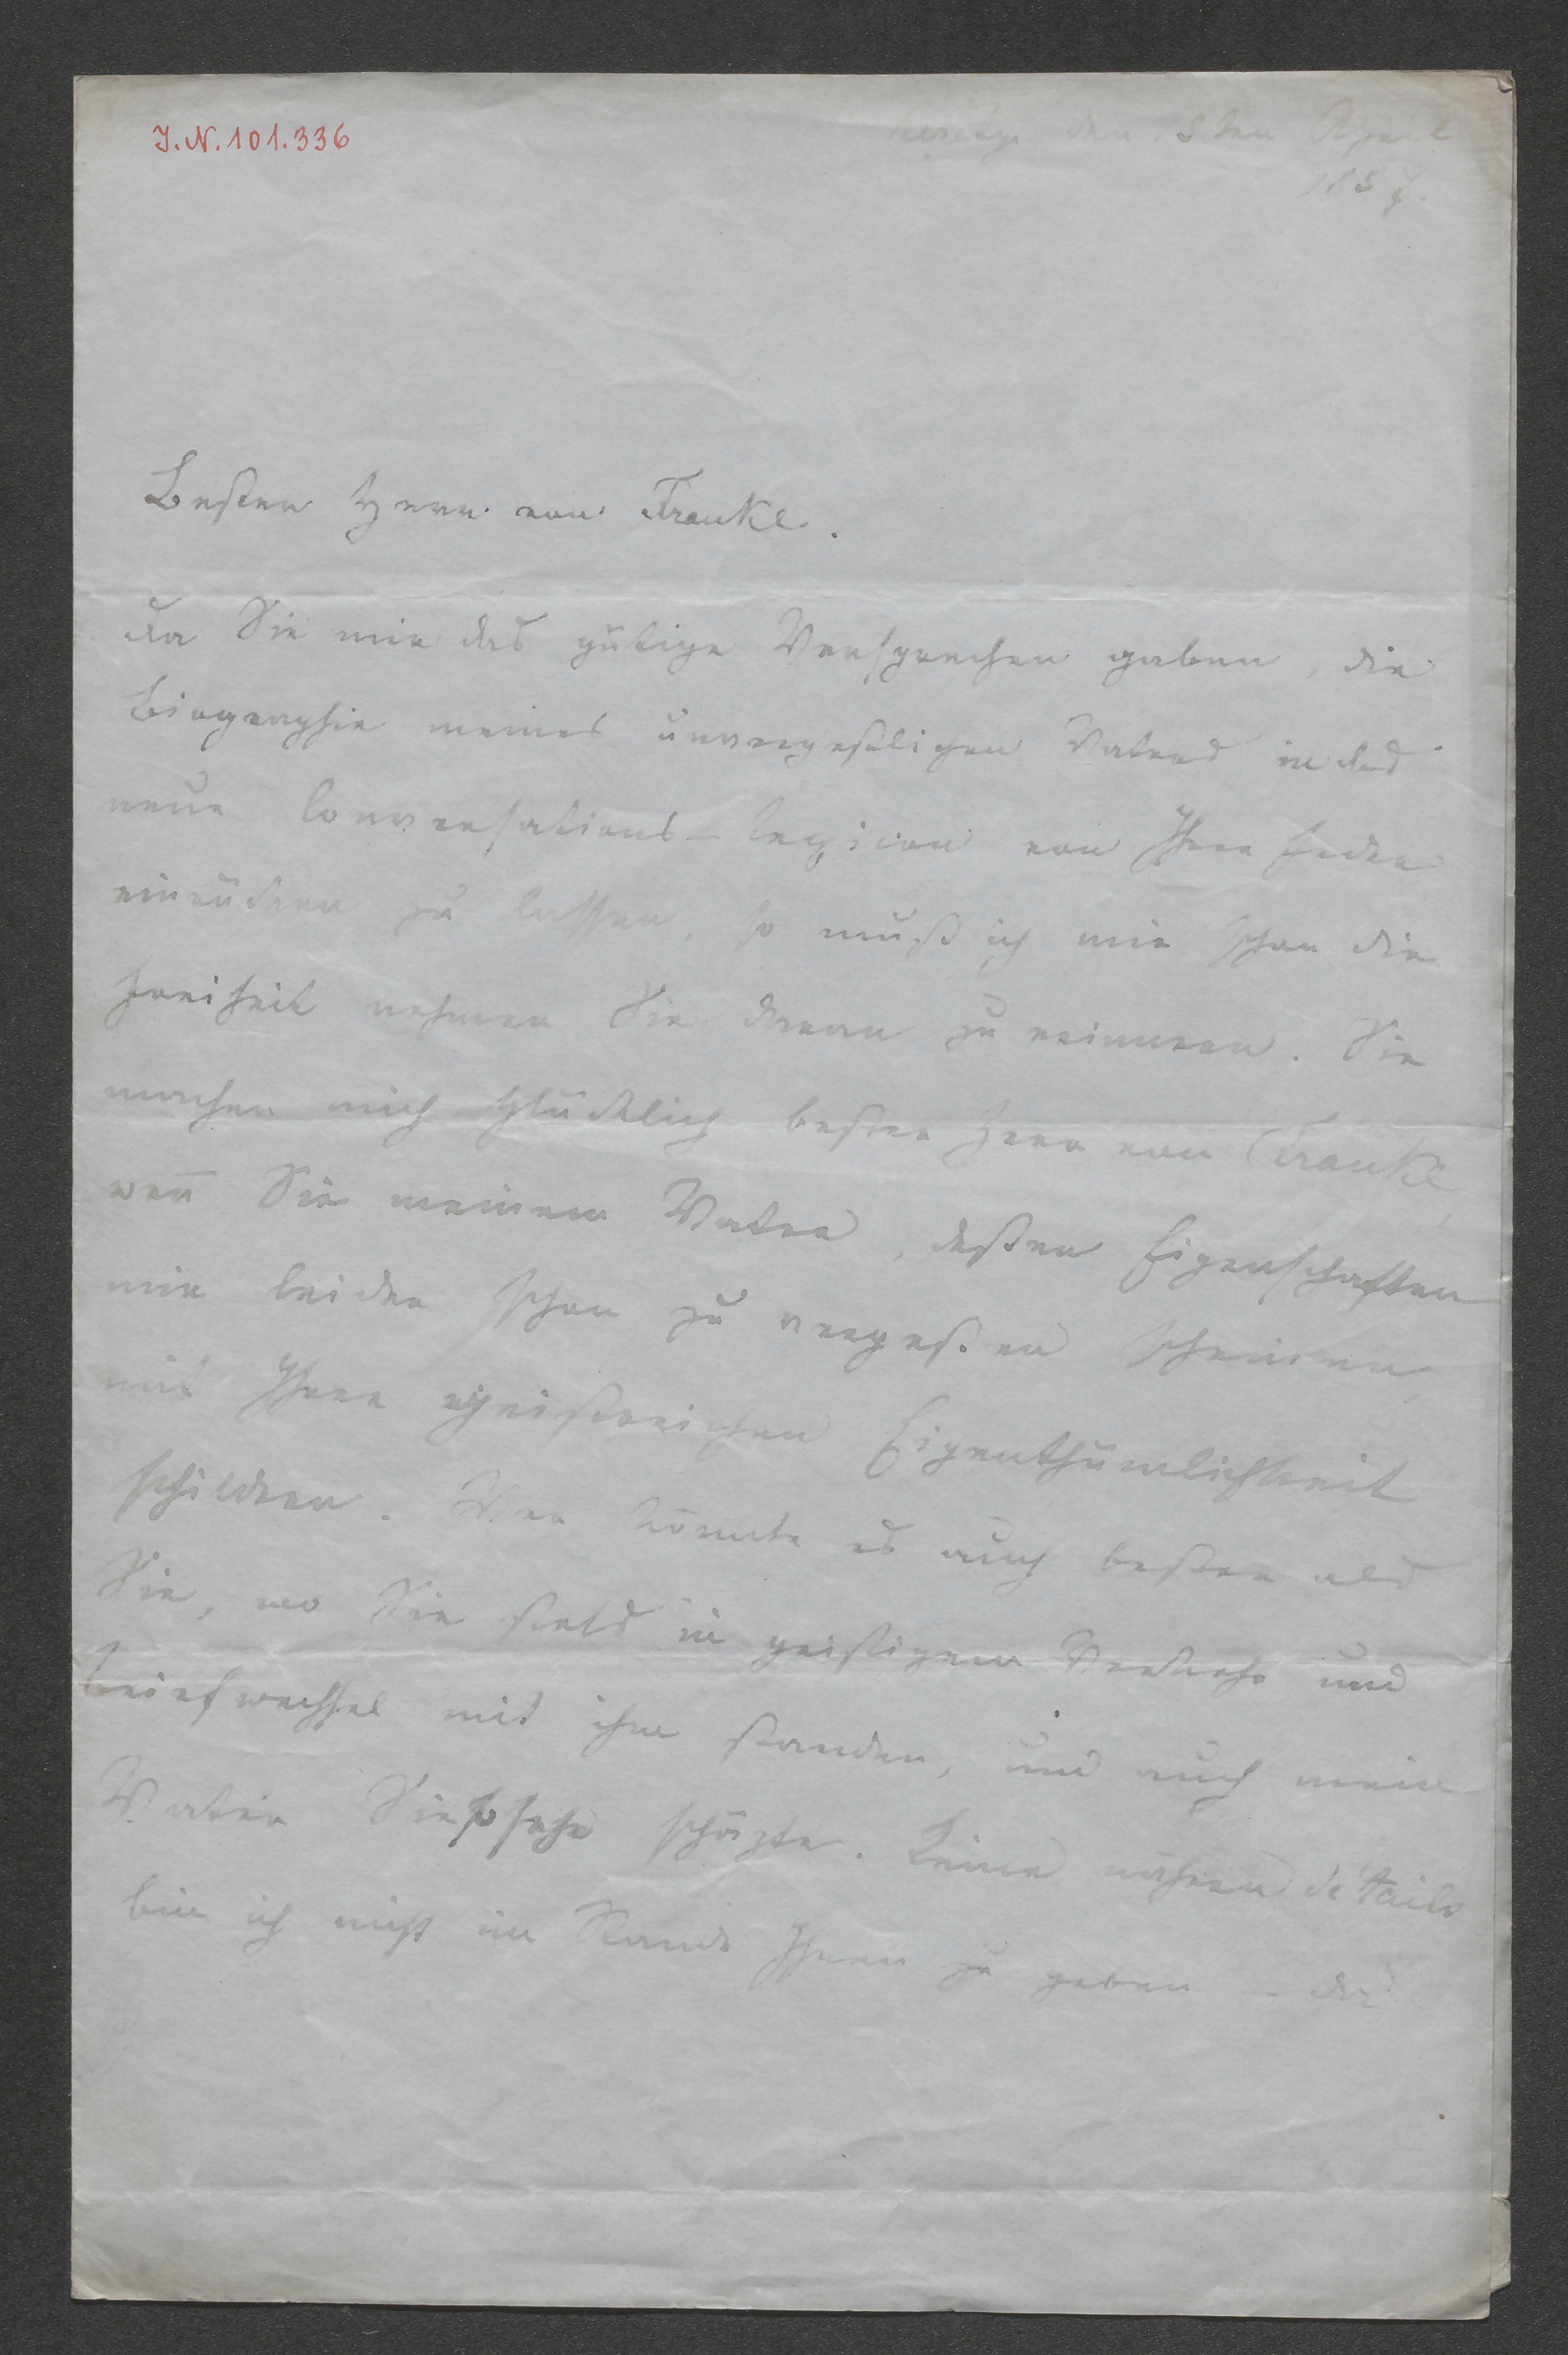 J.N.101.336
den 18ten April
185
Bester Herr von Frankl.
Da Sie mir das gütige Versprechen gaben, die
Biographie meines unvergeßlichen Vaters in das
neue Conversations-Lexicon von Ihrer Feder
einrücken zu lassen, so muß ich mir schon die
Freiheit nehmen Sie daran zu erinnern. Sie
machen mich glücklich bester Herr von Frankl,
weñ Sie meinem Vater, deßen Eigenschaften
mir leider schon zu vergeßen scheinen,
mit Ihrer geistreichen Eigenthümlichkeit
schildern. Wer könnte es auch beßer als
Sie, wo Sie stets in geistigem Verkehr und
Briefwechsel mit ihm standen, und auch mein
Vater Sie so sehr schäzte. Keine nähern détails
bin ich nicht im Stande Ihnen zu geben – da